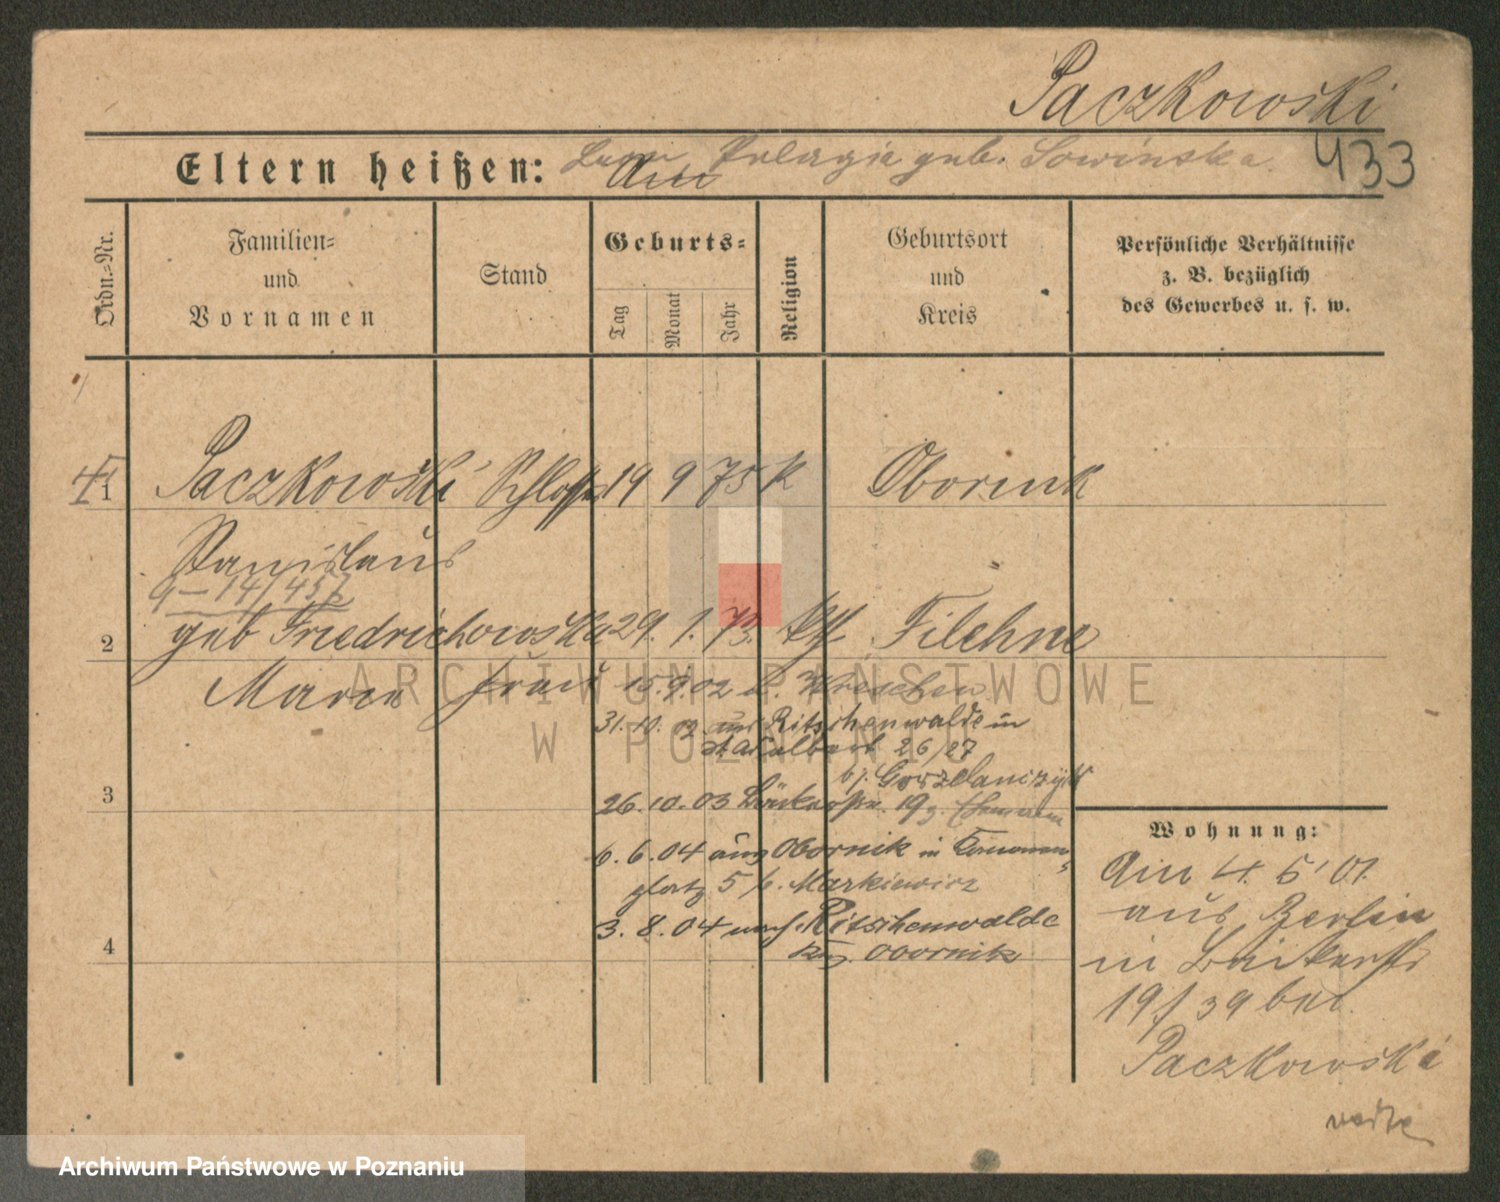 Paczkowski
Eltern heißen: Pelagia geb. Sowinska
433
Ordn.=Nr.
Familien=
und
Vornamen
Stand
Geburts=
Tag
Monat
Jahr
Religion
Geburtsort
und
Kreis
Persönliche Verhältnisse
z. B. bezüglich
des Gewerbes u. s. w.
1 Paczkowski Schlosser 19 9 75 K Obornik
Stanislaus
9-14/457
2 geb Friedrichowska 29. 1. 73. Filehne
Maria Frau 15.9.02 Wreschen
31.10. Ritschenwalde in
St Adalbert 26/27
b/. Gorzelanczyk
3 26.10.03 Bäckerstr. 19
6. 6.04 aus Obornik in
platz 5 b. Markiewicz
3. 8. 04 nach Ritschenwalde
4 Obornik
Wohnung:
Am 4. 5' 01
aus Berlin
in Bäckerstr
19/39 bei
Paczkowski
ARCHIWUM PAŃSTWOWE
W POZNANIU
Archiwum Państwowe w Poznaniu